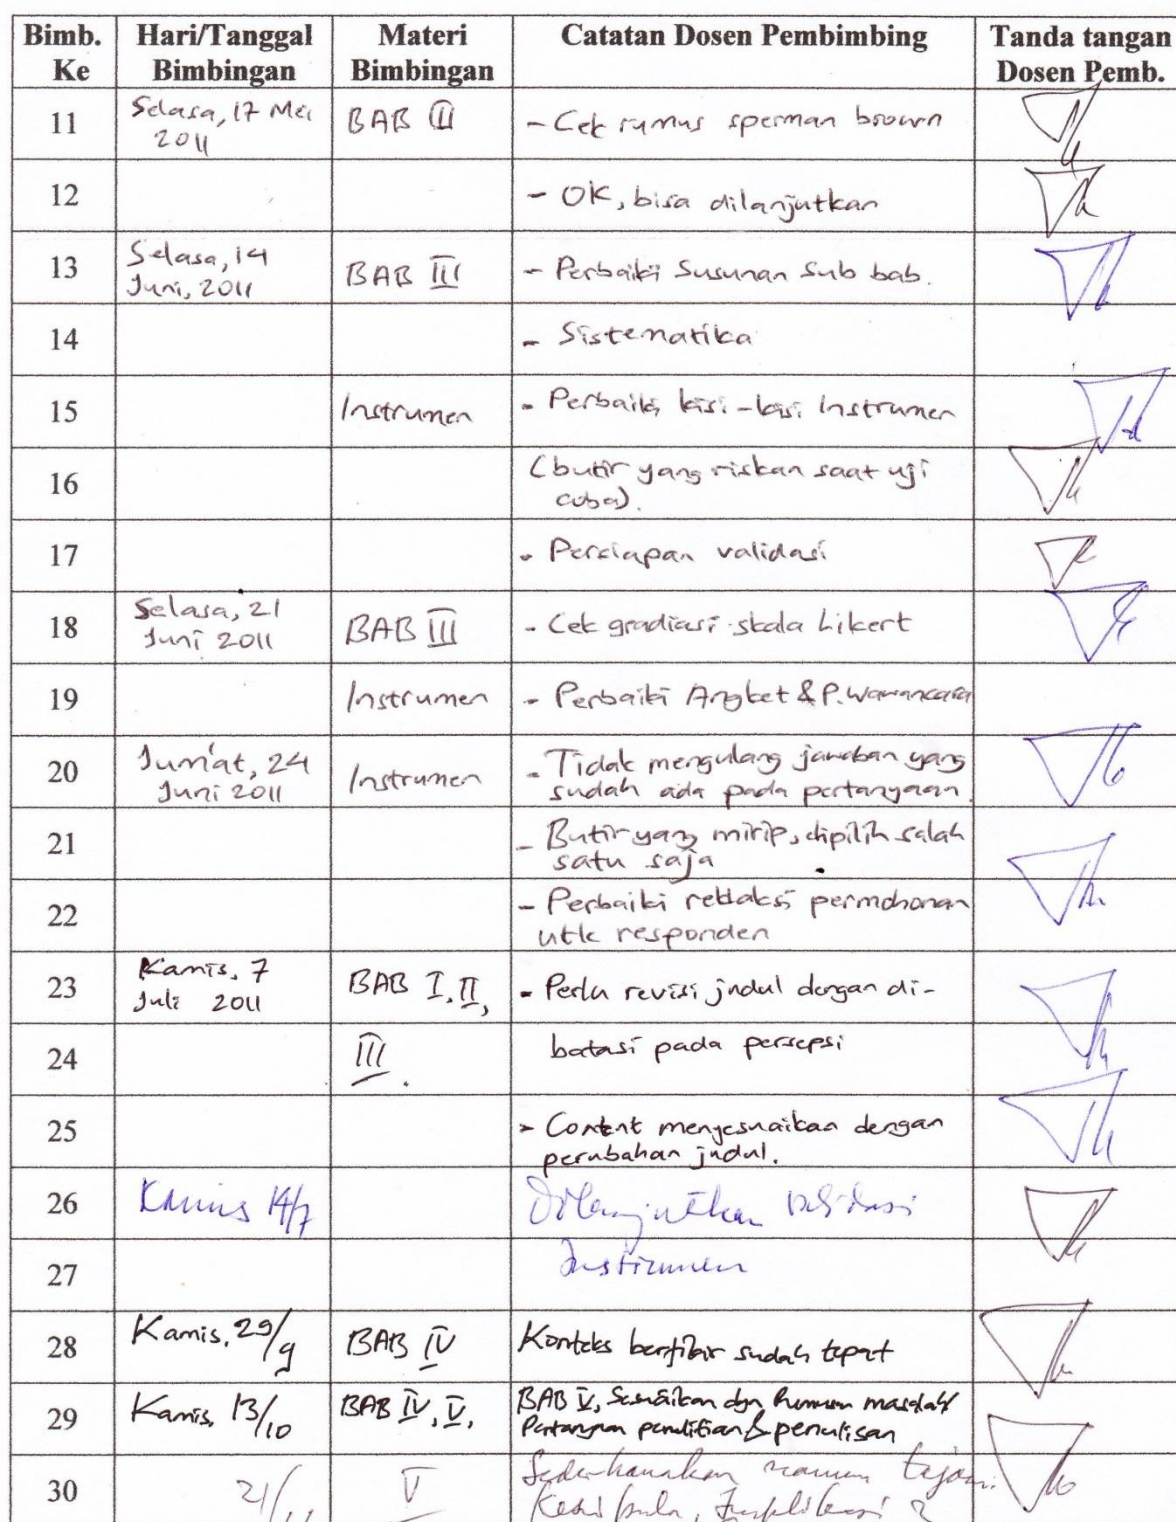 Bimb. Ke Hari/Tanggal Bimbingan Materi Bimbingan Catatan Dosen Pembimbing Tanda tangan Dosen Pemb.
11 Selasa, 17 Mei 2011 BAB III - Cek rumus sperman brown
12 - OK, bisa dilanjutkan
13 Selasa, 14 Juni, 2011 BAB III - Perbaiki Susunan Sub bab.
14 - Sistematika
15 Instrumen - Perbaiki kisi-kisi Instrumen
16 (butir yang riskan saat uji coba).
17 - Persiapan validasi
18 Selasa, 21 Juni 2011 BAB III - Cek gradiasi skala Likert
19 Instrumen - Perbaiki Angket & P. Wawancara
20 Jum'at, 24 Juni 2011 Instrumen - Tidak mengulang jawaban yang sudah ada pada pertanyaan
21 - Butir yang mirip, dipilih salah satu saja
22 - Perbaiki redaksi permohonan utk responden
23 Kamis, 7 Juli 2011 BAB I, II, - Perlu revisi judul dengan di-
24 III. batasi pada persepsi
25 - Content menyesuaikan dengan perubahan judul.
26 Kamis 14/7 Dilanjutkan validasi
27 Instrumen
28 Kamis, 29/9 BAB IV Konteks berfikir sudah tepat
29 Kamis, 13/10 BAB IV, V, BAB V, Sesuaikan dgn Rumusan masalah/ Pertanyaan penelitian & penulisan
30 21/11 V Sederhanakan namun tajam. Kesimpulan, Implikasi